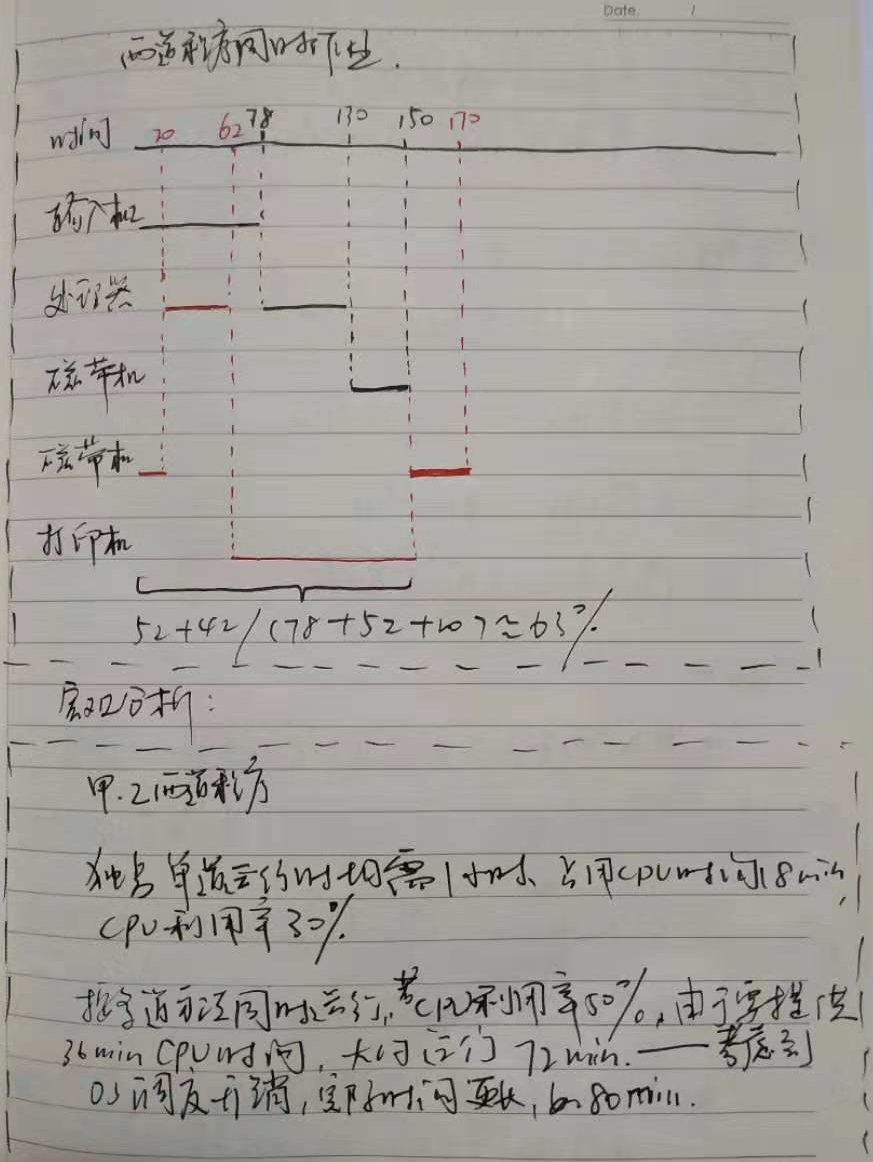 Date. /
两道程序同时
时间 20 62 78 130 150 170
输入机
处理器
磁带机
磁带机
打印机
52+42/(78+52+20)≈63%
分析:
甲.乙两道程序
独占单道运行时均需1小时、占用CPU时间18min,
CPU利用率30%.
按多道方法同时运行,若CPU利用率50%,由于要提供
36min CPU时间,大约运行72min.——考虑到
OS调度开销,实际时间更长,如80min.